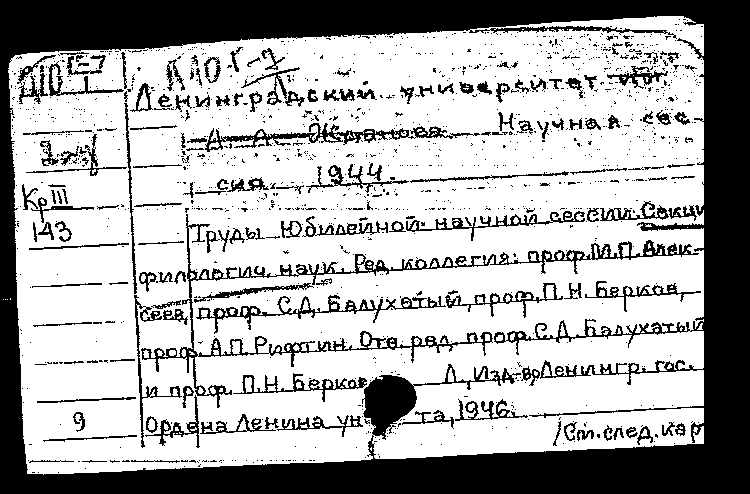 Д10 Г-7/1 Д10 Г-7/1
Ленинградский университет им.
2 экз А. А. Жданова. Научная сес-
Кр III сия. 1944.
143 Труды Юбилейной научной сессии. Секци
филологич. наук. Ред. коллегия: проф. М.П. Алек-
сеев, проф. С.Д. Балухатый, проф. П.Н. Берков,
проф. А.П. Рифтин. Отв. ред. проф. С.Д. Балухатый
и проф. П.Н. Берков Л., Изд-во Ленингр. гос.
9 Ордена Ленина ун та, 1946.
/См. след. кар